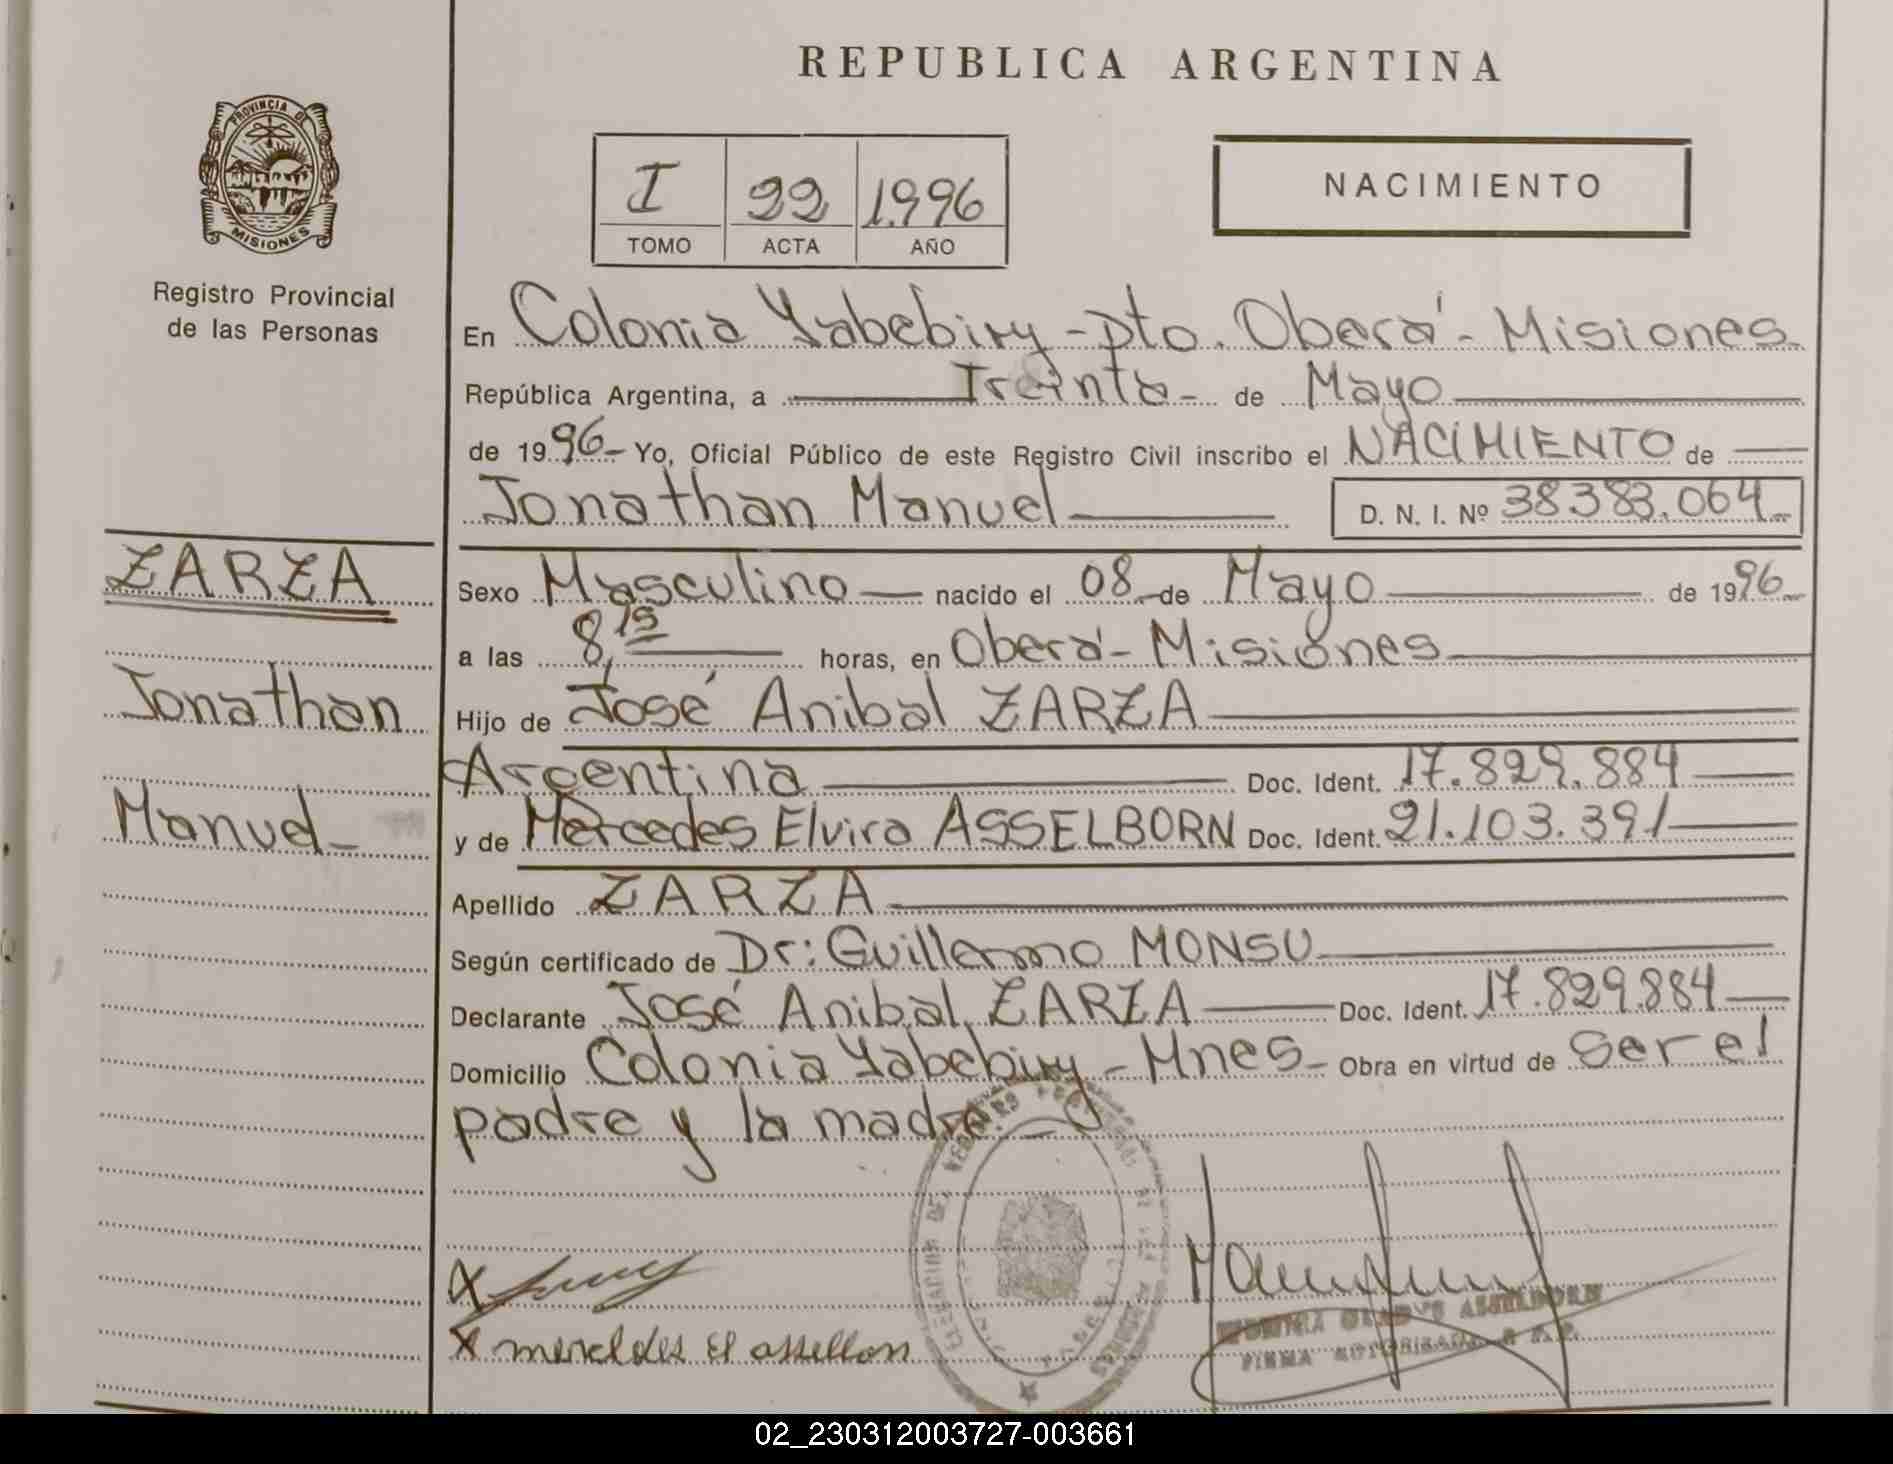 REPUBLICA ARGENTINA
PROVINCIA DE
MISIONES
Registro Provincial
de las Personas
I 22 1996
TOMO ACTA AÑO
NACIMIENTO
En Colonia Yabebiry - Dto. Oberá - Misiones
República Argentina, a Treinta - de Mayo
de 1996 - Yo, Oficial Público de este Registro Civil inscribo el NACIMIENTO de
Jonathan Manuel D. N. I. Nº 38383.064
ZARZA
Jonathan
Manuel
Sexo Masculino nacido el 08 de Mayo de 1996
a las 8,15 horas, en Oberá - Misiones
Hijo de José Anibal ZARZA
Argentina Doc. Ident. 17.829.884
y de Mercedes Elvira ASSELBORN Doc. Ident. 21.103.391
Apellido ZARZA
Según certificado de Dr: Guillermo MONSU
Declarante José Anibal ZARZA Doc. Ident. 17.829.884
Domicilio Colonia Yabebiry - Mnes - Obra en virtud de ser el
padre y la madre.
X
X mercedes El assellon
GLADYS ASSELBORN
FIRMA AUTORIZADA
02_230312003727-003661